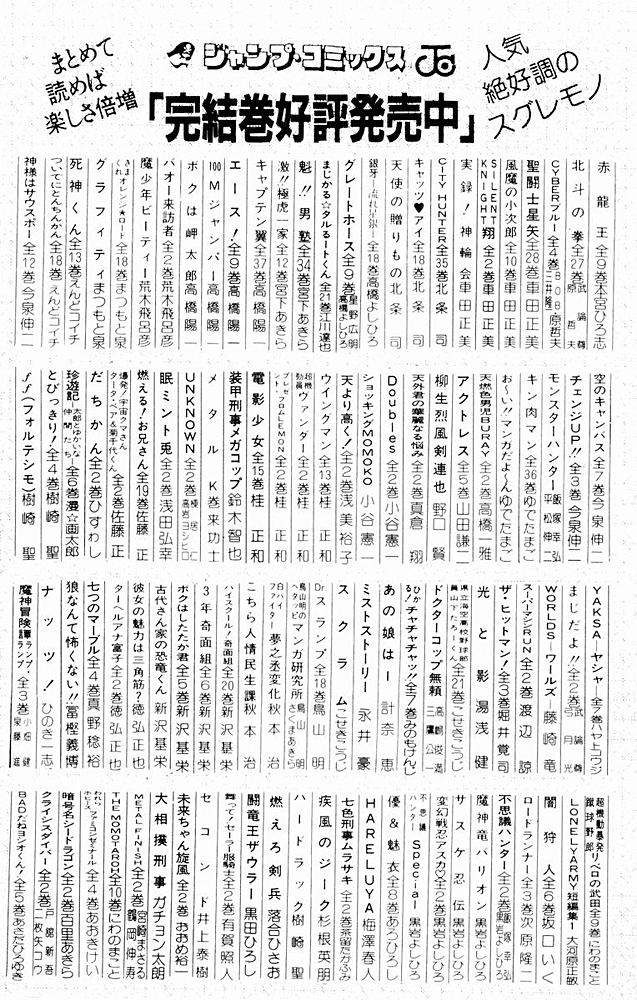 まとめて
読めば
楽しさ倍増
ジャンプ・コミックス
人気
絶好調の
スグレモノ
「完結巻好評発売中」
赤龍王 全9巻 本宮ひろ志
北斗の拳 全27巻 武論尊 原哲夫
CYBERブルー 全4巻 原哲夫
聖闘士星矢 全28巻 車田正美
風魔の小次郎 全10巻 車田正美
SILENT KNIGHT翔 全2巻 車田正美
実録!神輪会 車田正美
CITY HUNTER 全35巻 北条司
キャッツ♥アイ 全18巻 北条司
天使の贈りもの 北条司
銀牙―流れ星銀― 全18巻 高橋よしひろ
グレートホース 全9巻 星野広明 高橋よしひろ
まじかる☆タルるートくん 全21巻 江川達也
魁!!男塾 全34巻 宮下あきら
激!!極虎一家 全12巻 宮下あきら
キャプテン翼 全37巻 高橋陽一
エース! 全9巻 高橋陽一
100Mジャンパー 高橋陽一
ボクは岬太郎 高橋陽一
バオー来訪者 全2巻 荒木飛呂彦
魔少年ビーティー 荒木飛呂彦
きまぐれオレンジ★ロード 全18巻 まつもと泉
グラフィティ まつもと泉
死神くん 全13巻 えんどコイチ
ついでにとんちんかん 全18巻 えんどコイチ
神様はサウスポー 全12巻 今泉伸二
空のキャンバス 全7巻 今泉伸二
チェンジUP!! 全3巻 今泉伸二
モンスターハンター 飯塚幸弘 平松伸二
キン肉マン 全36巻 ゆでたまご
おぐ〜い!!マンガだよ〜ん ゆでたまご
天燃色男児BURAY 全2巻 高橋一雅
アクトレス 全5巻 山田謙二
柳生烈風剣連也 野口賢
天外君の華麗なる悩み 全2巻 真倉翔
Doubles 全2巻 小谷憲一
ショッキングMOMOKO 小谷憲一
天より高く! 全2巻 浅美裕子
ウイングマン 全13巻 桂正和
超機動員ヴァンダー 全2巻 桂正和
プレゼント・フロムLEMON 全2巻 桂正和
電影少女 全15巻 桂正和
装甲刑事メガコップ 鈴木智也
メタルK 巻来功士
UNKNOWN 全2巻 高岩ヨシヒロ
眠兎 全2巻 浅田弘幸
燃える!お兄さん 全19巻 佐藤正
爆発!宇宙クマさん 全2巻 佐藤正
だちかん 全2巻 ひすわし
珍遊記―太郎とゆかいな仲間たち― 全6巻 漫☆画太郎
とびっきり! 全4巻 樹崎聖
ff(フォルテシモ) 樹崎聖
YAKSA―ヤシャ― 全7巻 ハヤトコウジ
まじだよ!! 全2巻 武論尊 弓月光
WORLDS―ワールズ― 藤崎竜
スーパーマシンRUN 全2巻 渡辺諒
ザ・ヒットマン! 全3巻 堀井覚司
光と影 湯浅健
県立海空高校野球部員山下たろーくん 全21巻 こせきこうじ
ドクターコップ無頼 高嶋俊満 三鷹公一
ひかるチャチャチャッ!! 全7巻 みのもけんじ
あの娘は― 計奈恵
ミストストーリー 永井豪
スクラム こせきこうじ
Dr.スランプ 全18巻 鳥山明
鳥山明のヘタッピマンガ研究所 さくまあきら 鳥山明
白バイファイター夢之丞変化 秋本治
こちら人情民生課 秋本治
ハイスクール!奇面組 全20巻 新沢基栄
3年奇面組 全6巻 新沢基栄
ボクはしたたか君 全5巻 新沢基栄
古代さん家の恐竜くん 新沢基栄
彼女の魅力は三角筋? 徳弘正也
ターヘルアナ富子 全2巻 徳弘正也
七つのマーブル 全4巻 真野稔裕
狼なんて怖くない!! 冨樫義博
ナッツ! ひのき一志
魔神冒険譚ランプ・ランプ 全3巻 小畑健 泉藤進
超機動暴発蹴球野郎リベロの武田 全9巻 にわのまこと
LONELY ARMY 短編集1 大河原正敏
闇狩人 全6巻 坂口いく
ロードランナー 全3巻 次原隆二
不思議ハンター 全2巻 飯塚幸弘 黒岩よしひろ
変幻戦忍アスカ♡ 全2巻 黒岩よしひろ
サスケ忍伝 黒岩よしひろ
魔神竜バリオン 黒岩よしひろ
不思議ハンターSpecial 黒岩よしひろ
優&魅衣 全8巻 あろひろし
HARELUYA 梅澤春人
七色刑事ムラサキ 全2巻 茶留たかふみ
疾風のジーク 杉根英明
ハードラック 樹崎聖
燃えろ剣兵 落合ひさお
闘竜王ザウラー 黒田ひろし
舞って!セーラー服騎士 全2巻 有賀照人
セコンド 井上泰樹
未来ちゃん旋風 全2巻 おおめ裕一
大相撲刑事 ガチョン太郎
METAL FINISH 全2巻 宮崎まさる 鶴岡伸寿
THE MOMOTAROH 全10巻 にわのまこと
ホビーズ 全4巻 あおきけい
暗号名シードラゴン 全2巻 百里あきら
クライシスダイバー 全2巻 戸舘新吾 二枚矢コウ
BADだねヨシオくん! 全5巻 あさだひろゆき